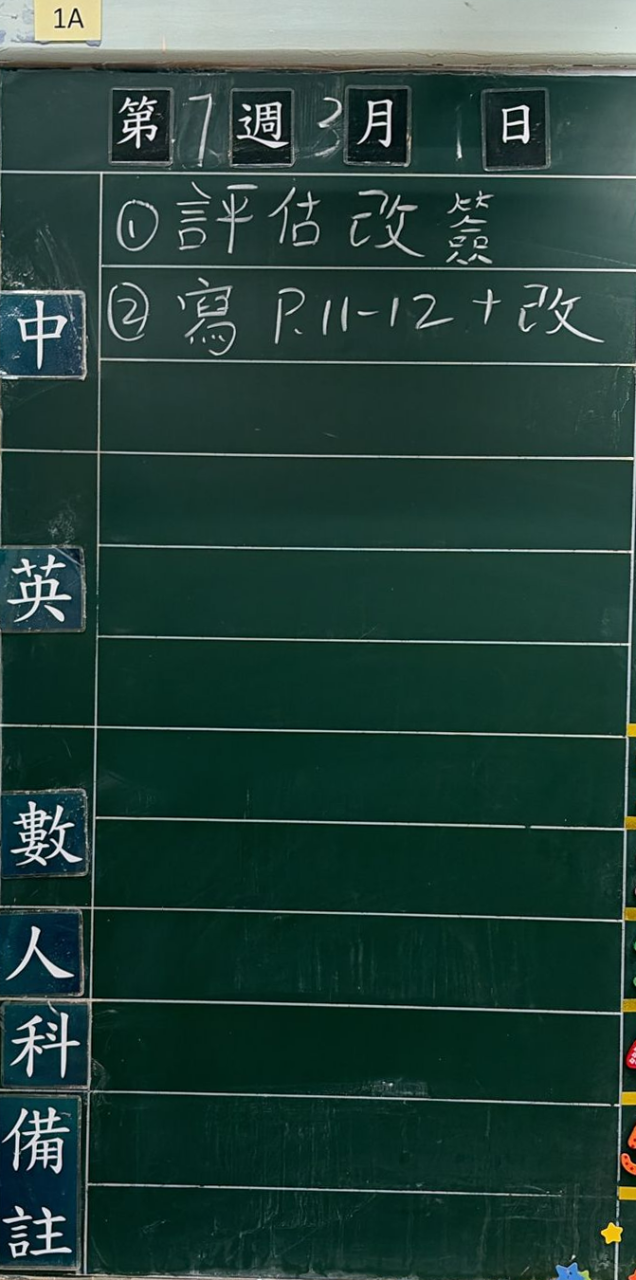 1A
第7週3月1日
①評估改簽
中
②寫 P.11-12+改
英
數
人
科
備
註